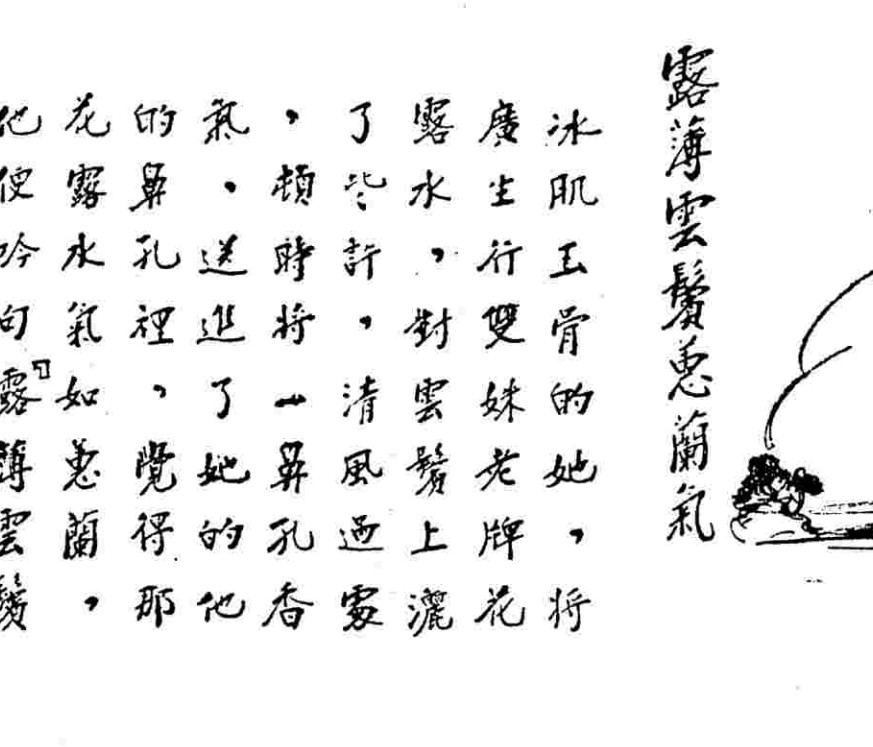 露薄雲鬢蕙蘭氣
冰肌玉骨的她，將
廣生行雙妹老牌花
露水，對雲鬢上灑
了些許，清風過處
，頓時將一鼻孔香
氣，送進了她的他
的鼻孔裡，覺得那
花露水氣如蕙蘭，
他便吟句「露薄雲鬢